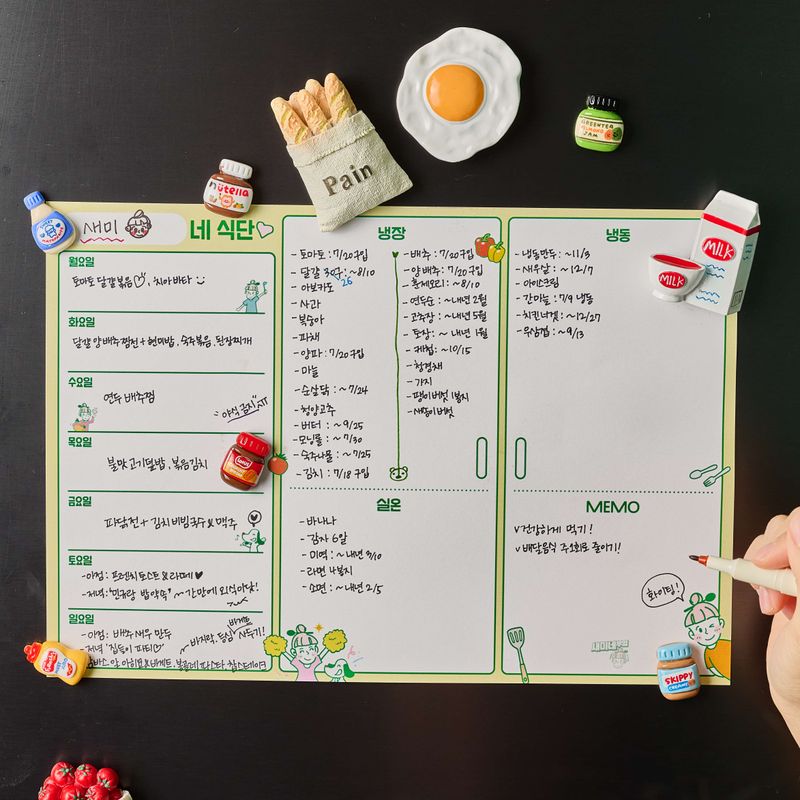 Pain
nutella
GREENTEA
ALMOND
JAM
MILK
MILK
새미 네 식단
월요일
토마토 달걀 볶음, 치아바타
화요일
달걀 양배추찜전 + 현미밥, 숙주볶음, 된장찌개
수요일
연두 배추찜
야식 금지
목요일
불맛 고기덮밥, 볶음김치
금요일
파닭전 + 김치비빔국수 & 맥주
토요일
- 아점: 프렌치토스트 & 라떼
- 저녁: "민규랑 밥약속" ~ 간만에 외식이닷!
일요일
- 아점: 배추 새우 만두
- 저녁 "집들이 파티"
바게트
~ 바지락, 등심 사두기!
냉장
- 토마토: 7/20 구입
- 달걀 30구: ~8/10
26
- 아보카도
- 사과
- 복숭아
- 파채
- 양파: 7/20 구입
- 마늘
- 순살닭: ~7/24
- 청양고추
- 버터: ~9/25
- 모닝롤: ~7/30
- 숙주나물: ~7/25
- 김치: 7/18 구입
- 배추: 7/20 구입
- 양배추: 7/20 구입
- 훈제오리: ~8/10
- 연두순: ~내년 2월
- 고추장: ~내년 5월
- 토장: ~내년 1월
- 케첩: ~10/15
- 청경채
- 가지
- 팽이버섯 1봉지
- 새송이버섯
실온
- 바나나
- 감자 6알
- 미역: ~내년 3/10
- 라면 4봉지
- 소면: ~내년 2/5
냉동
- 냉동만두: ~11/3
- 새우살: ~12/7
- 아이스크림
- 간마늘: 7/9 냉동
- 치킨너겟: ~12/27
- 우삼겹: ~9/13
MEMO
v 건강하게 먹기!
v 배달음식 주1회로 줄이기!
화이팅!
SKIPPY
CREAMY